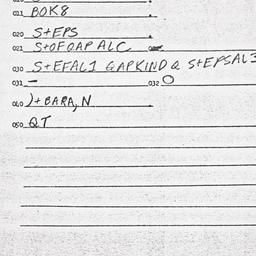 011 BOK8
020 S+EPS
021 S+OFOAP ALC
030 S+EFAL1 GAPKIND & S+EPSAL3
031 - 032 O
040 )+BARA, N
050 QT